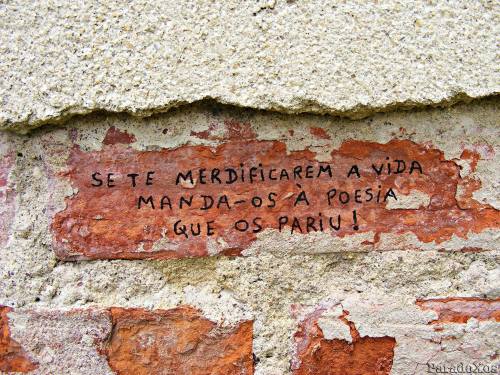 SE TE MERDIFICAREM A ViDA
MANDA-OS À POESIA
QUE OS PARIU!
ParadoXos